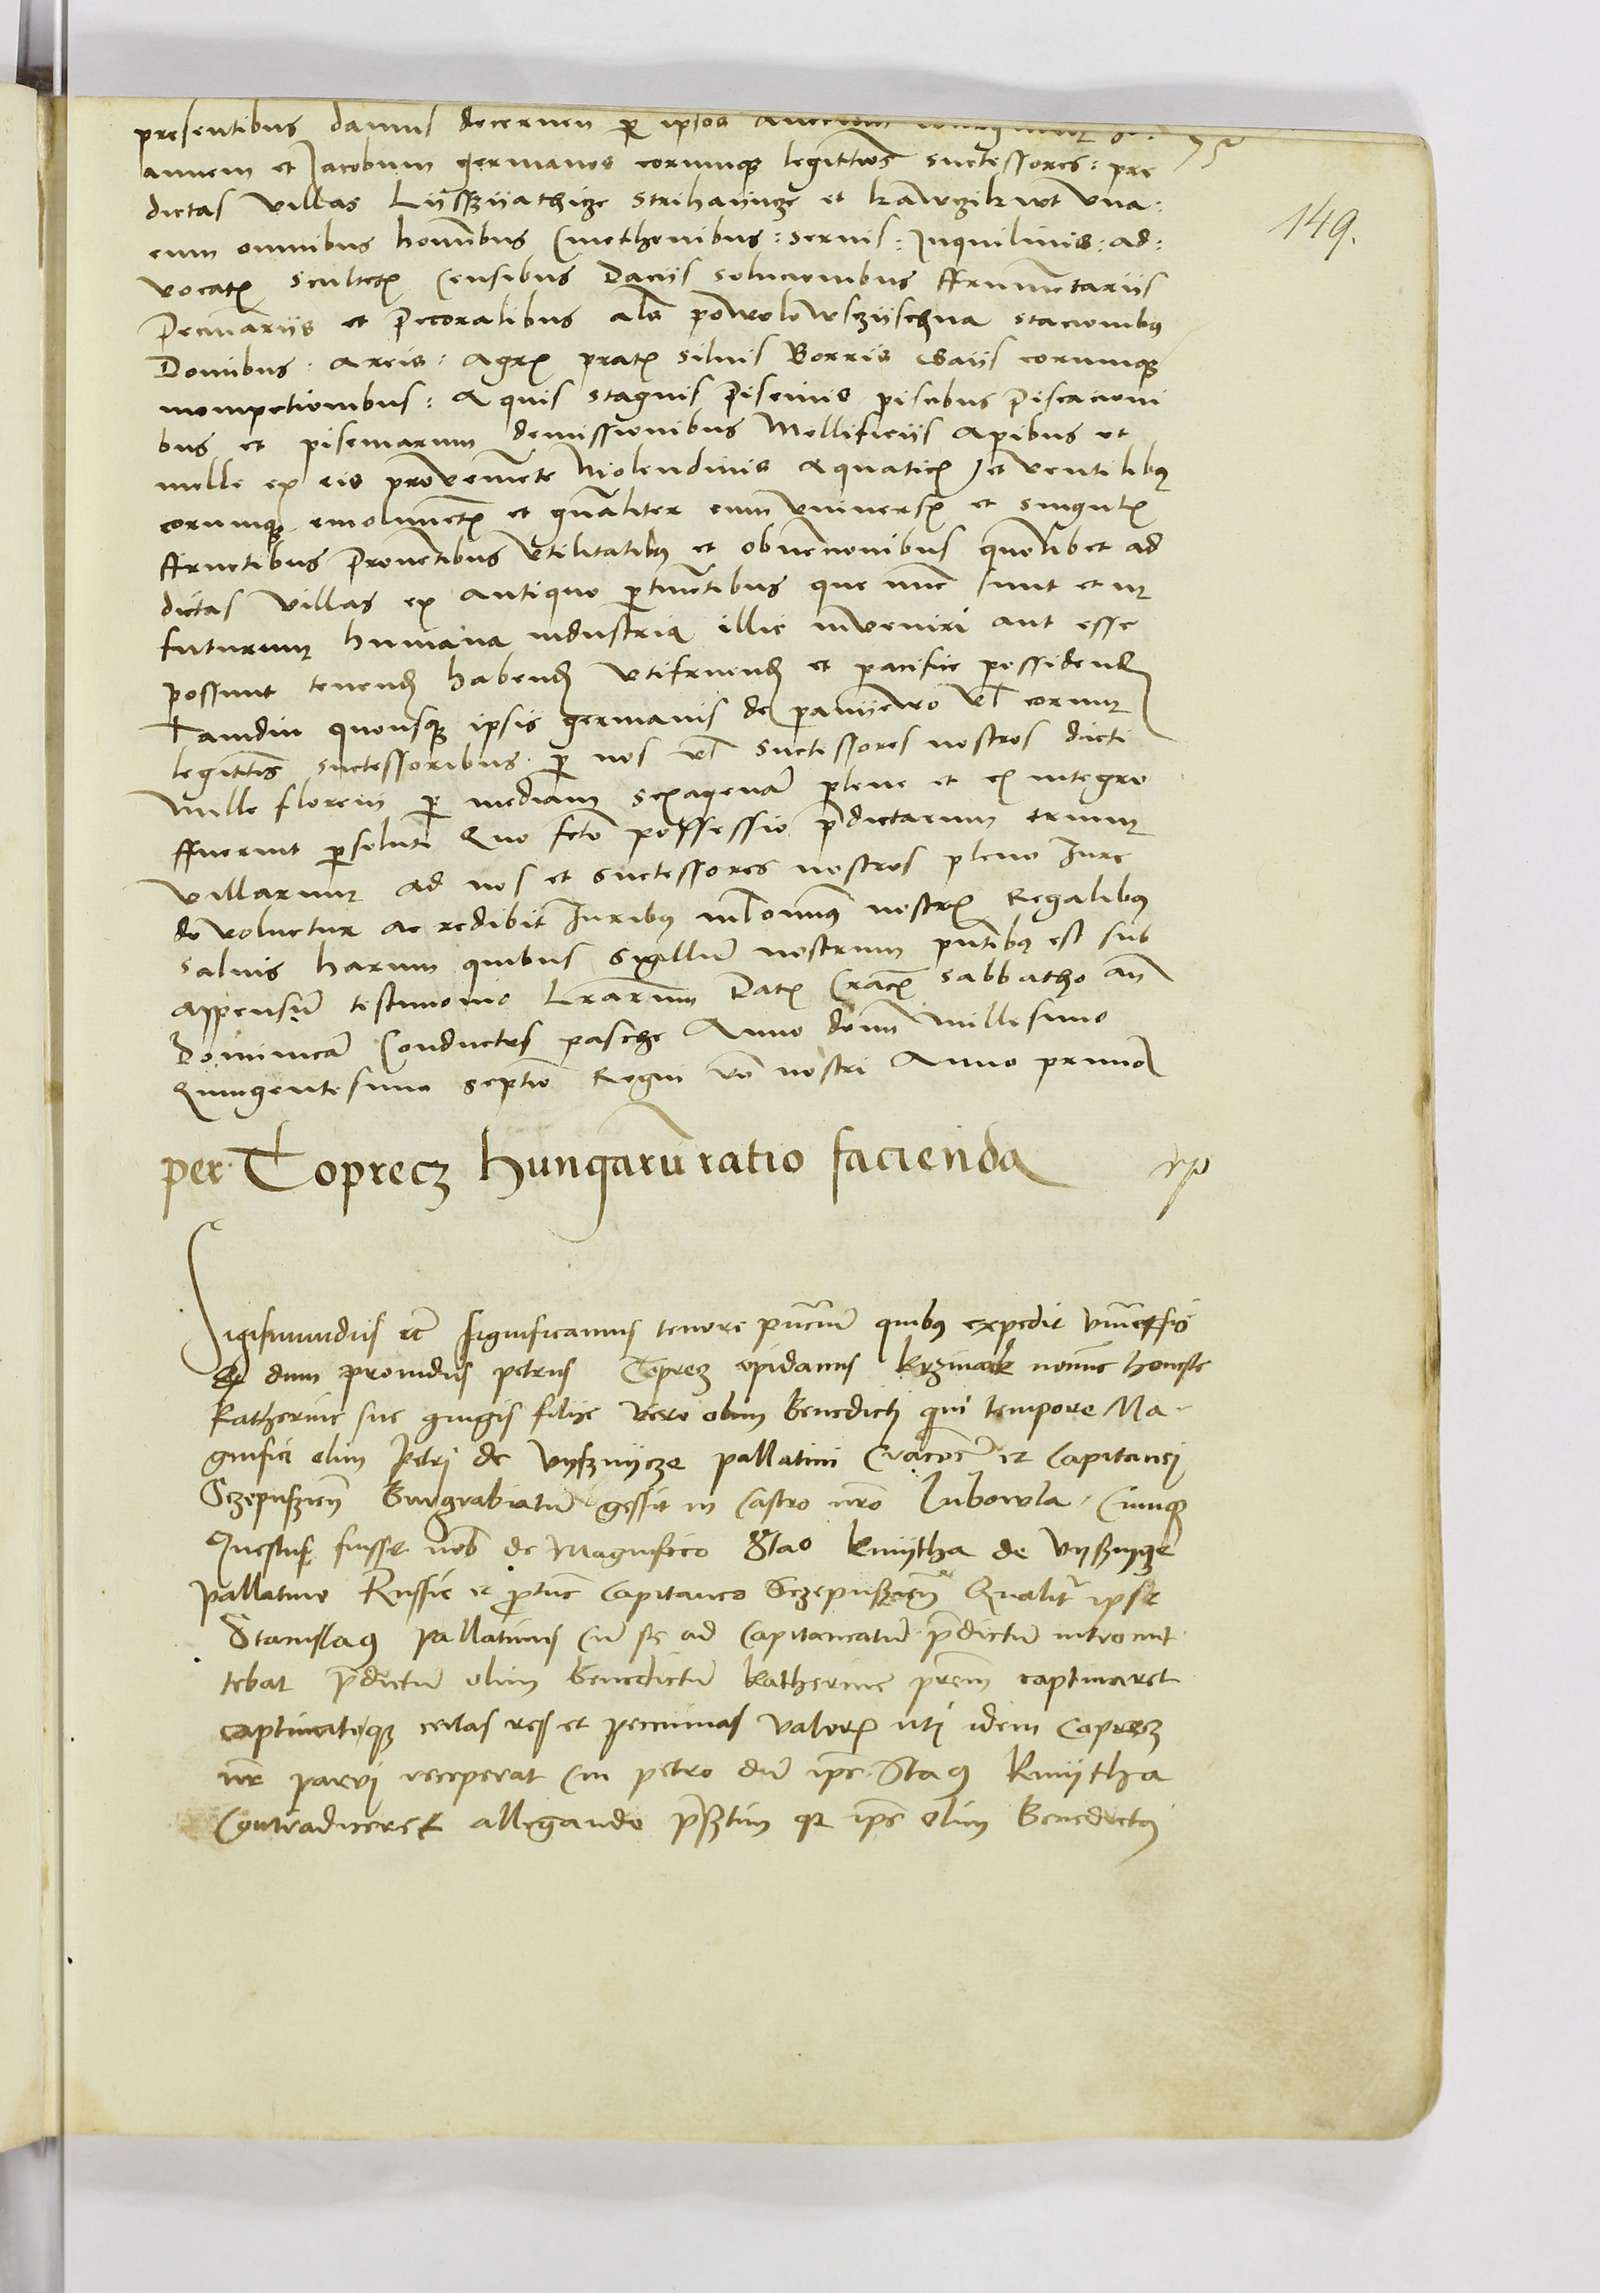 presentibus damus decernen per ipsos
75
annem et Jacobum germanos eorumque legittimos successores : pre
149.
dictas villas Lysszyathicze Strihanycze et Kawczikwt vna :
cum omnibus hominibus Cmethonibus : servis : Inquilinis : ad :
vocatis scultetis Censibus Daciis solucionibus ffrumentariis
Pecuniariis et Pecoralibus als powolowsczyschzna stacionibus
Domibus : areis : agris pratis silvis Borris Gaiis eorumque
mompetionibus : Aquis stagnis piscinis piscibus Piscacioni
bus et piscinarum demissionibus Mellificiis apibus et
melle ex eis proveniente Molendinis aquaticis et ventilibus
eorumque emolumentis et generaliter cum vniversis et singulis
ffructibus Proventibus Vtilitatibus et obvencionibus quomodolibet ad
dictas villas ex antiquo pertinentibus que nunc sunt et in
futurum humana industria illic inveniri aut esse
possunt tenend habend Vtifruend et pacifice possidend
Tamdiu quousque ipsis germanis de panyewo vel eorum
legittimis successoribus per nos vel successores nostros dicti
mille floreni per mediam sexagenam plene et ex integro
ffuerint persoluti Quo facto possessio predictarum trium
villarum ad nos et successores nostros pleno Iure
devoluetur ac redibit Iuribus in omnibus nostris Regalibus
salvis harum quibus Sigillum nostrum presentibus est sub
appensum testimonio Lrarum Datis Cracovie sabbatho ante
Dominicam Conductus pasche Anno domini Millesimo
Quingentesimo septimo Regni vero nostri Anno primo
per Toprecz hungarum ratio facienda
Sigismundus etc significamus tenore presencium quibus expedit vniversis
Quod dum providus petrus Toprecz opidanus Kyzmark nomine honeste
Katherine sue coniugis filie vero olim Benedicti qui tempore Ma
gnifici olim Petri de Vysznycze pallatini Cracovien et Capitanei
Sczepuszien Burgrabiatum gessit in Castro nostro Lubowla Cumque
Questus fuisset nobis de Magnifico Stao Kmytha de Vysznycze
pallatino Russie et pro tunc Capitaneo Sczepuszien Qualiter ipse
Stanislaus pallatinus cum se ad Capitaneatum predictum intromit
tebat predictum olim Benedictum Katherine patrem captivaret
captivatoque certas res et pecunias valoris uti idem Coprecz
non parvi receperat Cui petro dum ipse Staus Kmytha
Contradiceret allegando presertim quod ipse olim Benedictus